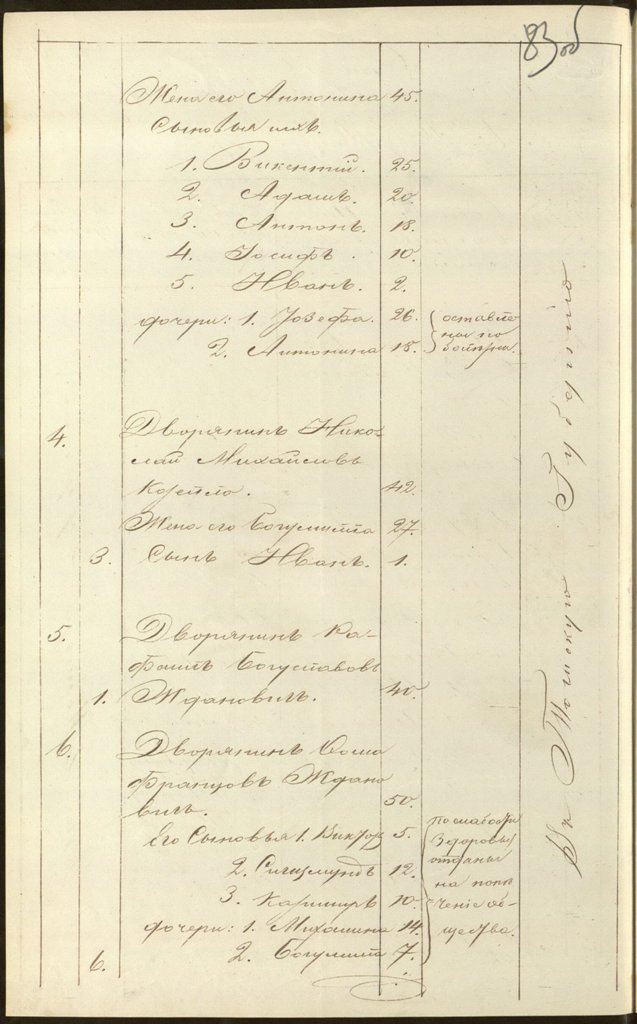 83 об
Жена его Антонина 45.
Сыновья ихъ.
1. Викентий. 25.
2. Адамъ. 20.
3. Антонъ. 18.
4. Іосифъ. 10.
5. Иванъ. 2.
дочери: 1. Іозефа. 26.
2. Антонина 18.
оставле
ны по
4. Дворянинъ Нико-
лай Михайловъ
42.
Жена его Богумилла 27.
3. Сынъ Иванъ. 1.
5. Дворянинъ Ра-
фаилъ Богуславовъ
1. Ждановичъ. 40.
6. Дворянинъ Фома
Францовъ Ждано
вичъ. 50.
Его Сыновья 1. Викторъ 5.
2. Сигизмундъ 12.
3. Казимиръ 10.
дочери: 1. Михалина 14.
6. 2. Богумила 7.
по слабости
здоровья
отданы
на попе
ченіе об-
щества.
Въ Томскую Губернію